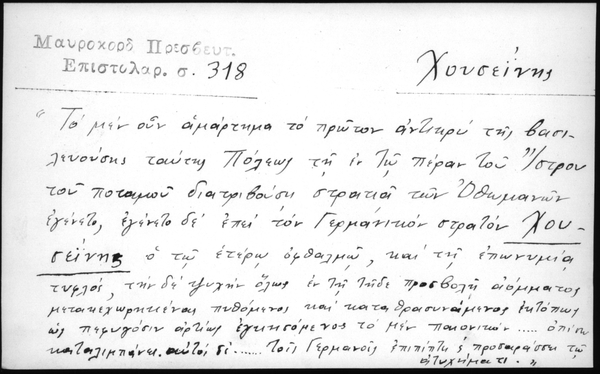 Μαυροκορδ Πρεσβευτ.
Επιστολαρ. σ. 318
Χουσεΐνης
"Τό μέν οὖν ἁμάρτημα τό πρῶτον ἀντικρύ τῆς βασι-
λευούσης ταύτης Πόλεως τῇ ἐν τῷ πέραν τοῦ Ἴστρου
τοῦ ποταμοῦ διατριβούσῃ στρατιᾷ τῶν Ὀθωμανῶν
ἐγένετο, ἐγένετο δέ ἐπεί τόν Γερμανικόν στρατόν Χου-
σεΐνης ὁ τῷ ἑτέρῳ ὀφθαλμῷ, καί τῇ ἐπωνυμίᾳ
τυφλός, τήν δέ ψυχήν ὅλως ἐν τῇ τῇδε προσβολῇ ἀόμματος
μετακεχωρηκέναι πυθόμενος καί καταθρασυνάμενος ἐκτόπως
ὡς πεφυγόσιν ἀρτίως ἐγκησόμενος τό μέν ..... ὀπίσω
καταλιμπάνει αὐτός δέ ...... τοῖς Γερμανοῖς ἐπιπίπτει ς προσαράσσει τῷ
ἀτυχήματι. "